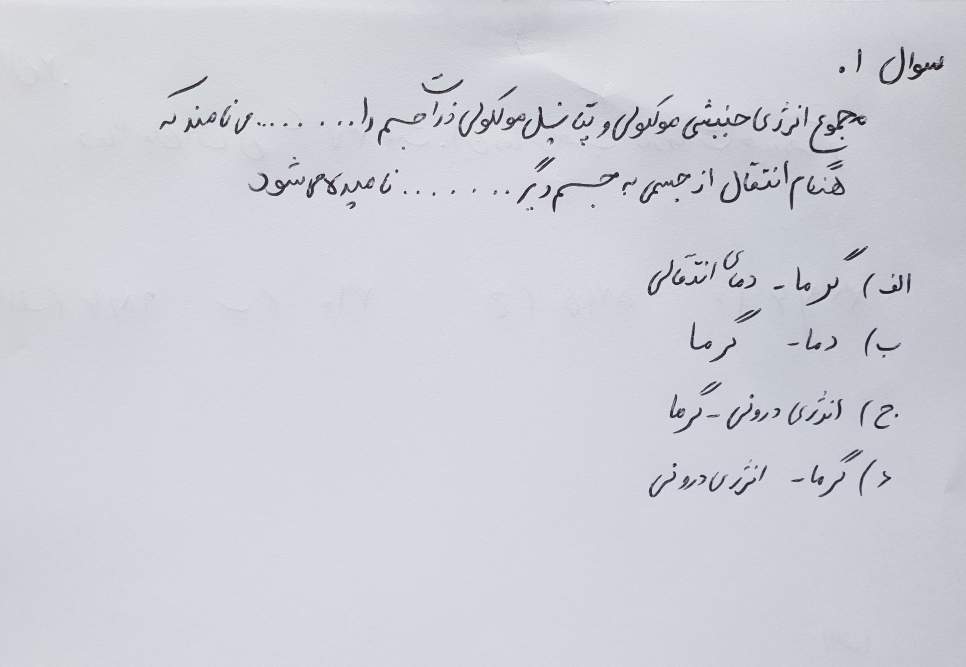 سوال ۱.
مجموع انرژی جنبشی مولکولی و پتانسیل مولکولی ذرات جسم را ....... می نامند که
هنگام انتقال از جسمی به جسم دیگر ....... نامیده می شود
الف) گرما - دمای انتقالی
ب) دما - گرما
ج) انرژی درونی - گرما
د) گرما - انرژی درونی